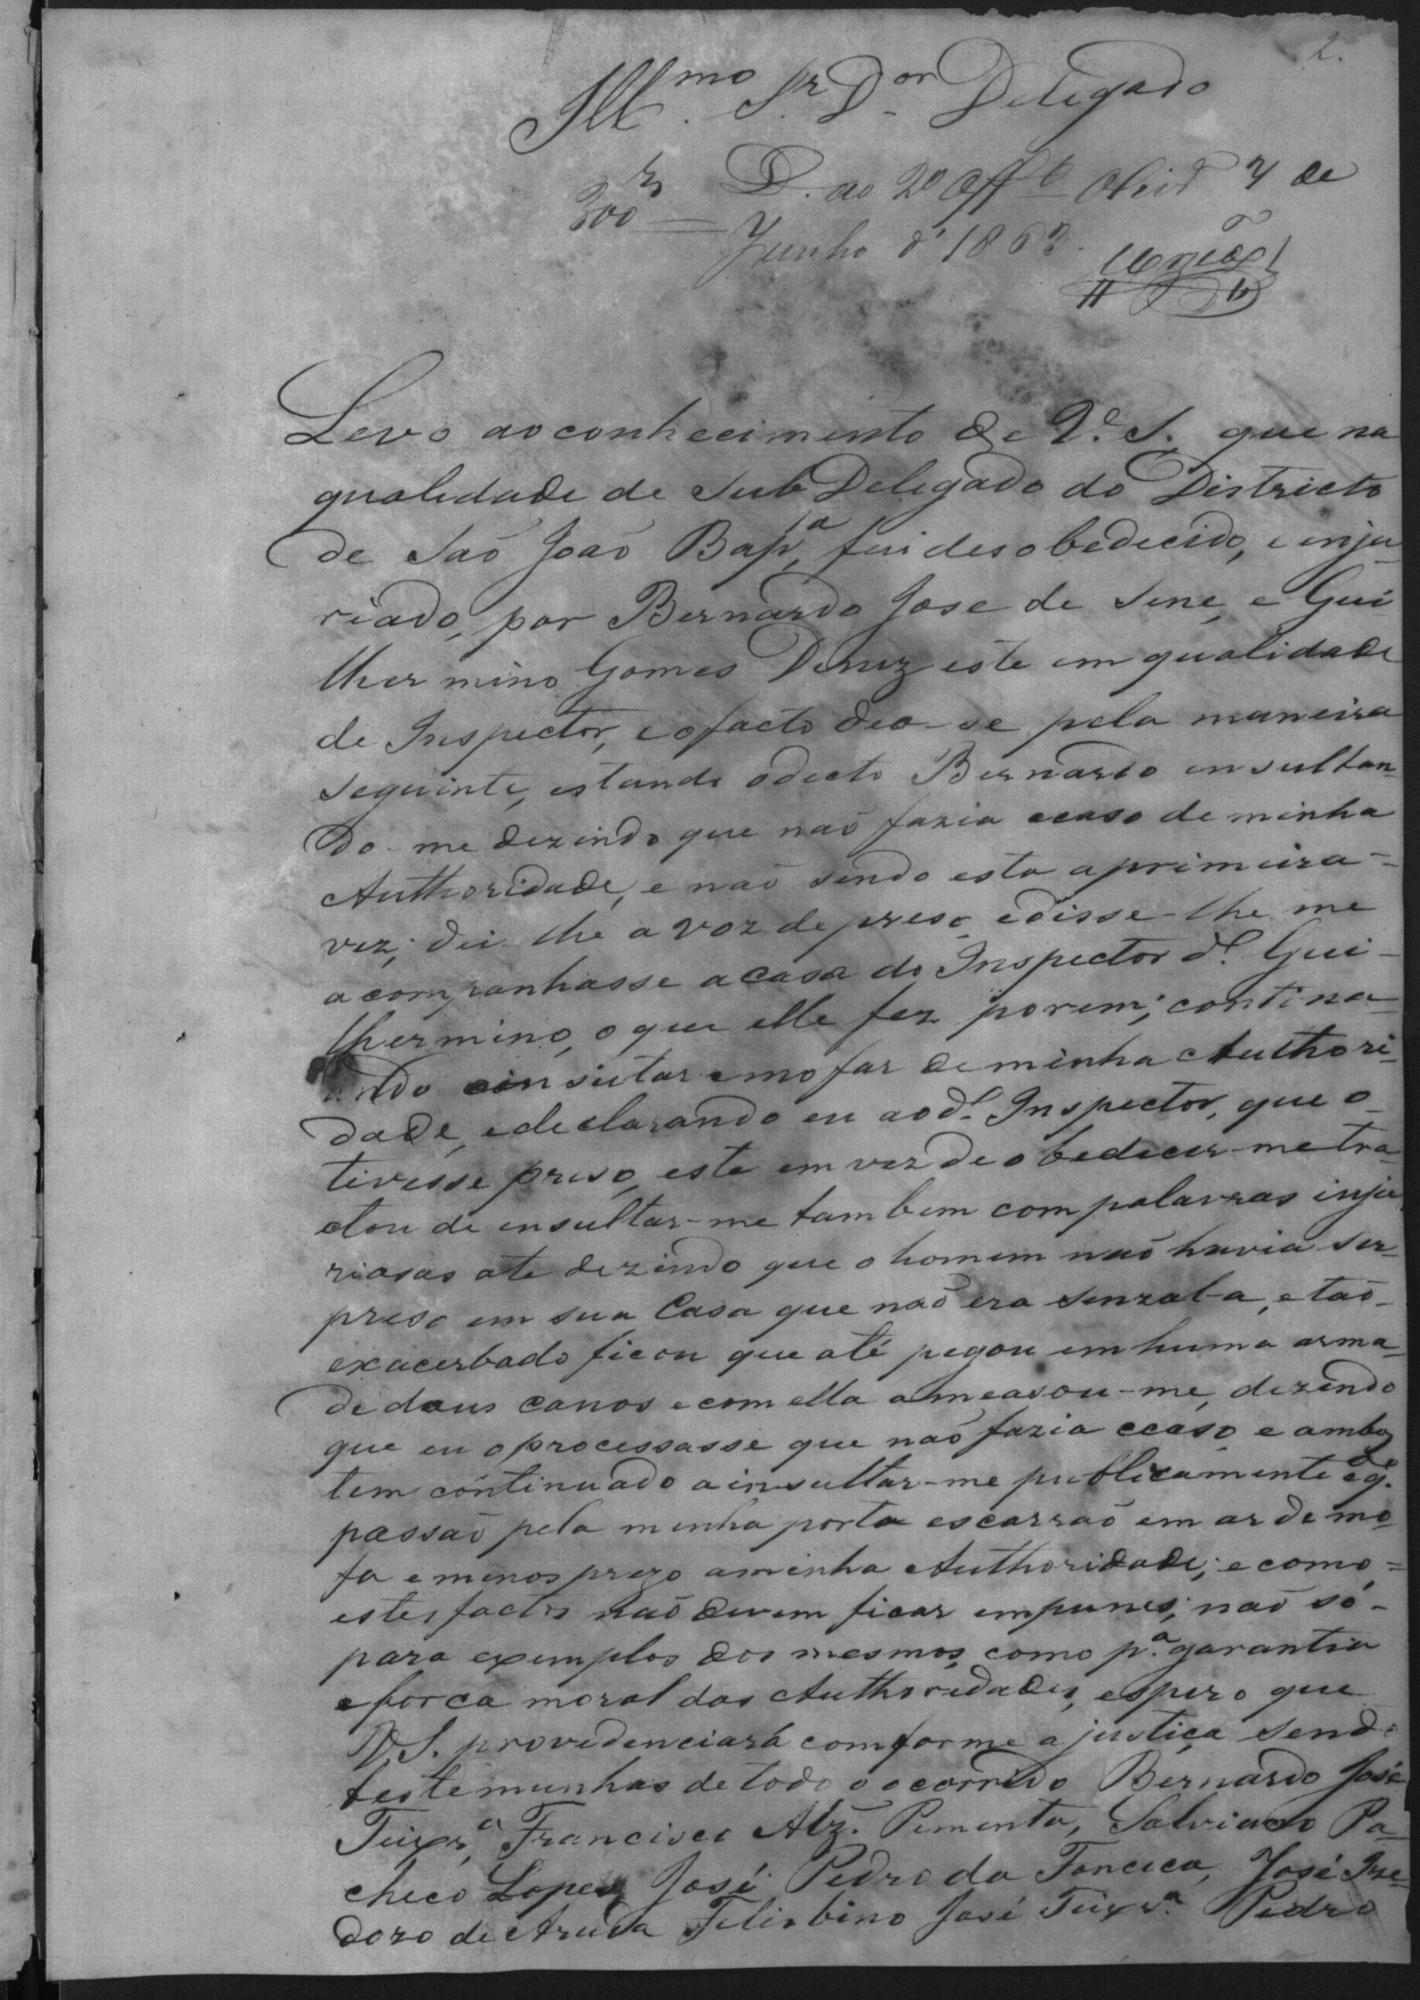 2.
Ill.mo Sr. D.or Delegado
300rs D. ao 2º Off.o 7 de
Junho d' 1863.
Levo ao conhecimento de V.ª S. que na
qualidade de Sub Delegado do Districto
de São João Bap.ta, fui desobedecido, e inju
riado, por Bernardo Jose de Sene, e Gui
lhermino Gomes Diniz este em qualidade
de Inspector, e o facto deo-se pela maneira
seguinte, estando o decto Bernardo ensultan-
do-me dezindo que não fazia ccaso de minha
Authoridade, e não sendo esta a primeira-
vez; dei-lhe a voz de preso, e disse-lhe me
acompanhasse a casa do Inspector d.º Gui-
lhermino, o que elle fez porem; contina-
ando a insultar e mofar de minha Authori-
dade, e declarando eu ao d.º Inspector, que o
tivesse preso, este em vez de obedecer-me tra-
ctou de ensultar-me tambem com palavras inju
riosas ate dezindo que o homem não havia ser-
preso em sua Casa que não era senzala, e tão-
exacerbado ficou que até pegou em huma arma-
de dous canos e com ella ameasou-me, dezendo
que eu o processasse que não fazia ccaso, e ambos
tem continuado a insultar-me publicamente e q.do
passão pela minha porta escarrão em ar de mo-
fa e menos prezo a minha Authoridade; e como-
estes factos não devem ficar empunes; não só-
para exemplos dos mesmos, como p.ª garantia
e forca moral das Authoridades, espero que
V.S. providenciará comforme a justiça sendo
testemunhas de todo o ocorrido Bernardo José
Teixr.ª, Francisco Alz. Pementa, Salviano Pa-
checo Lopes, José Pedro da Fonceca, José Ize-
doro de Aruda Felisbino José Teixr.ª Pedro